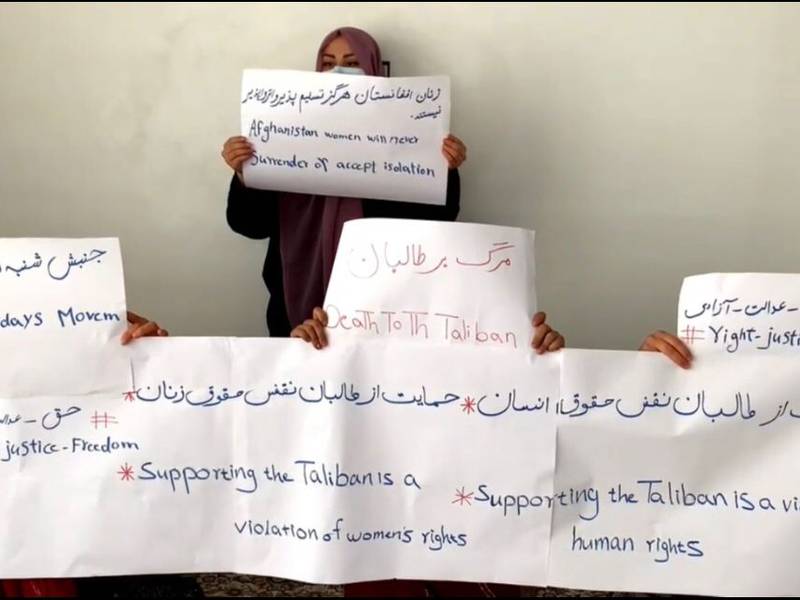 زنان افغانستان هرگز تسلیم پذیر و انزوا پذیر
نیستند.
Afghanistan women will never
Surrender of accept isolation
مرگ بر طالبان
Death To Th Taliban
جنبش شنبه
days Movem
حق - عدا
#
justice-Freedom
- عدالت - آزادی
#Yight-justic
*حمایت از طالبان نقض حقوق زنان
*Supporting the Taliban is a
violation of women's rights
از طالبان نقض حقوق انسان*
*Supporting the Taliban is a vi
human rights